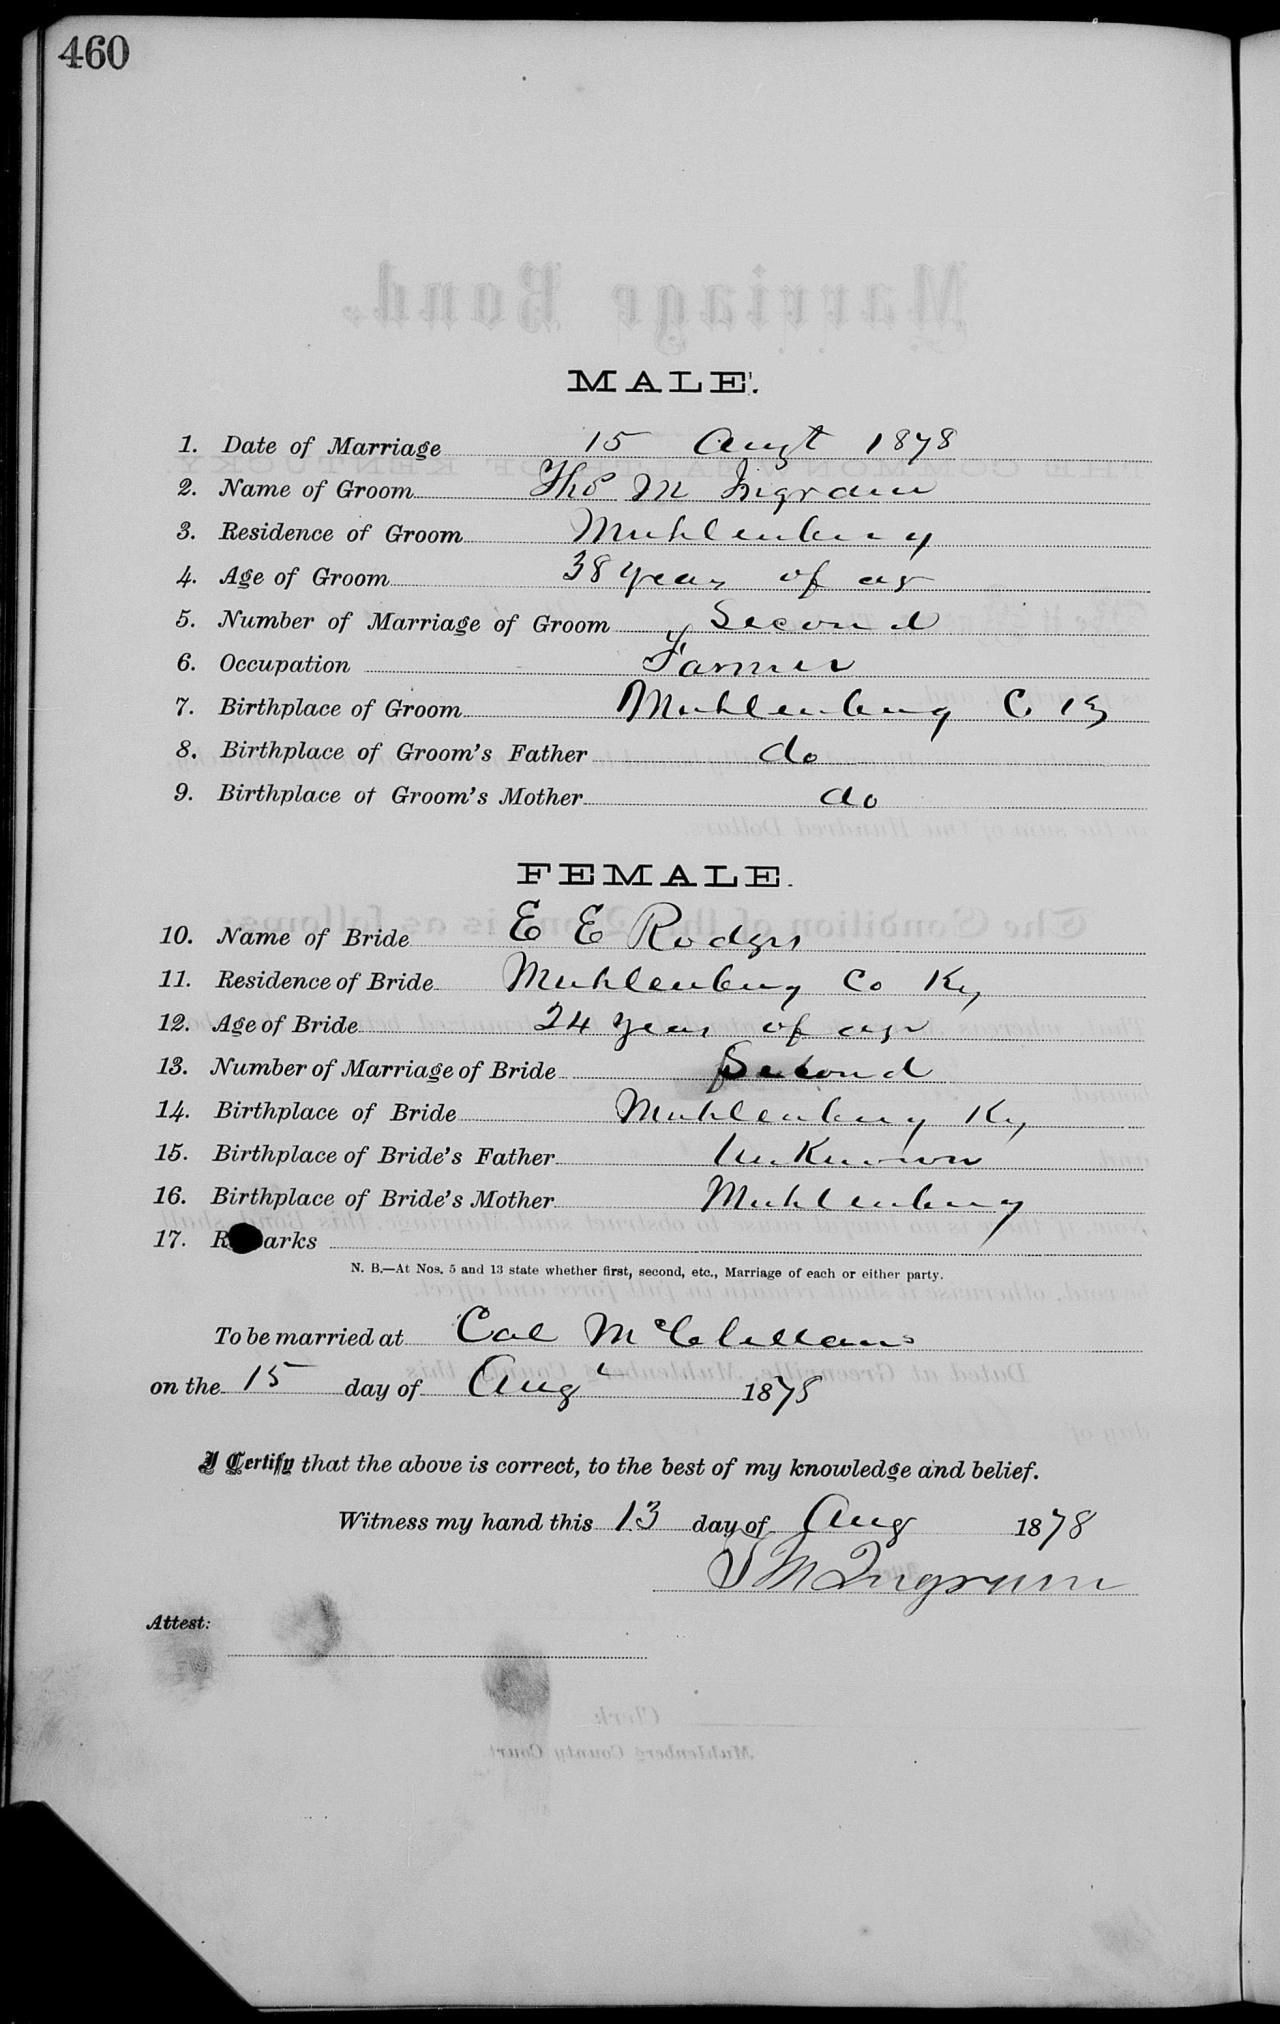 460
Marriage Bond.
MALE.
1. Date of Marriage 15 Augt 1878
2. Name of Groom Tho M Ingram
3. Residence of Groom Muhlenberg
4. Age of Groom 38 years of age
5. Number of Marriage of Groom Second
6. Occupation Farmer
7. Birthplace of Groom Muhlenberg C Ky
8. Birthplace of Groom's Father do
9. Birthplace of Groom's Mother do
FEMALE.
10. Name of Bride E E Rodgers
11. Residence of Bride Muhlenberg Co Ky
12. Age of Bride 24 years of age
13. Number of Marriage of Bride Second
14. Birthplace of Bride Muhlenberg Ky
15. Birthplace of Bride's Father Unknown
16. Birthplace of Bride's Mother Muhlenberg
17. R arks
N. B.—At Nos. 5 and 13 state whether first, second, etc., Marriage of each or either party.
To be married at Cal McClellans
on the 15 day of Aug 1878
I Certify that the above is correct, to the best of my knowledge and belief.
Witness my hand this 13 day of Aug 1878
T M Ingram
Attest:
Clerk
Muhlenberg County Court